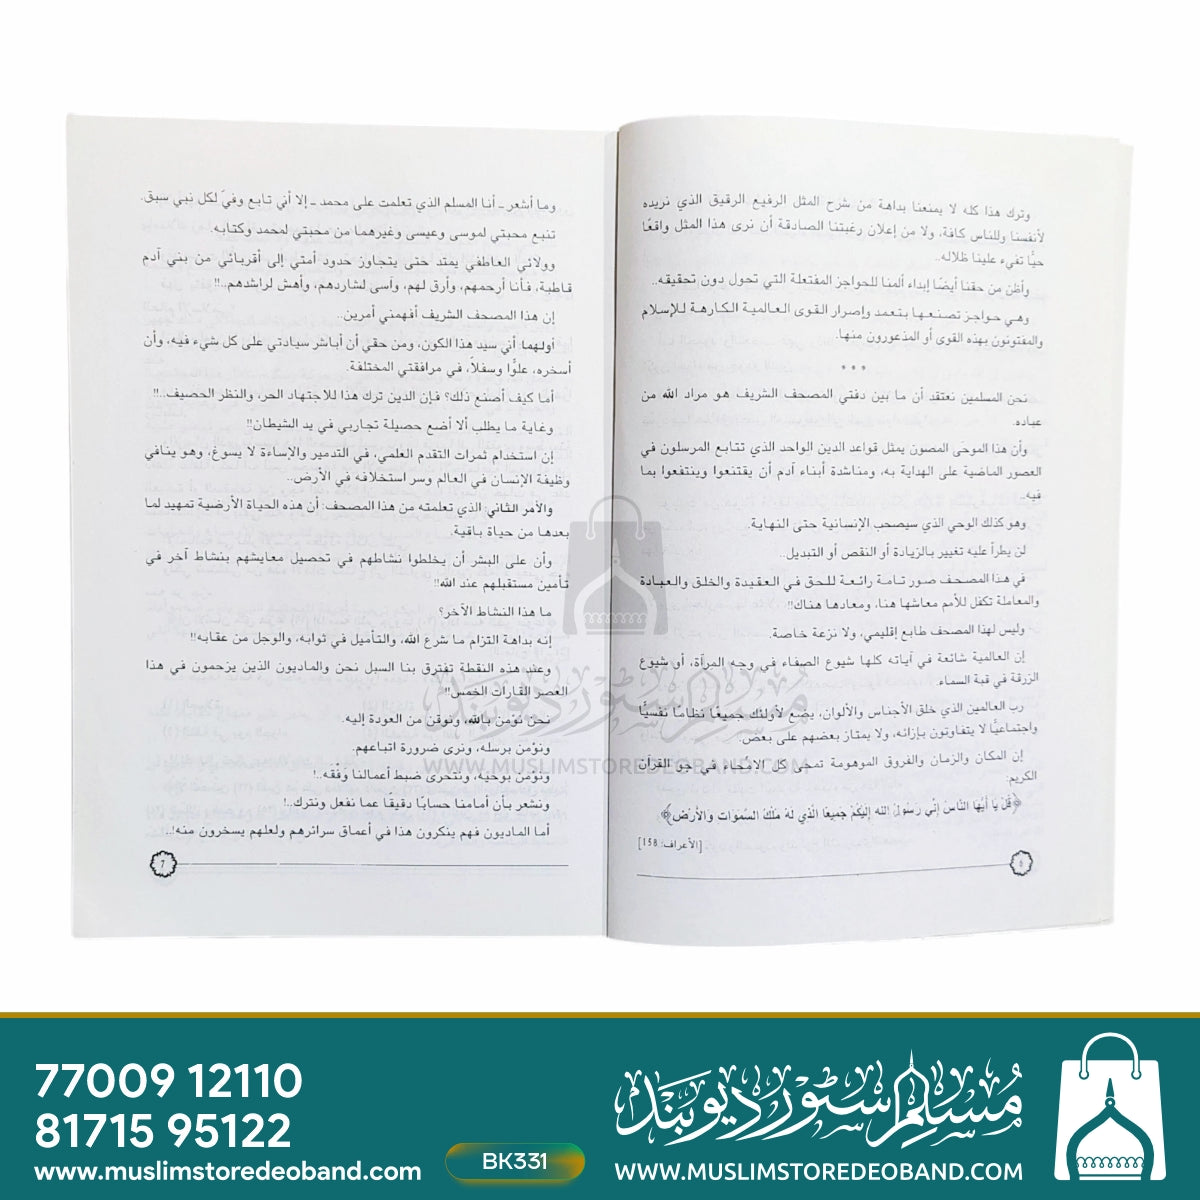 وترك هذا كله لا يمنعنا بداهة من شرح المثل الرفيع الرقيق الذي نريده
لأنفسنا وللناس كافة، ولا من إعلان رغبتنا الصادقة أن نرى هذا المثل واقعًا
حيًّا تفيء علينا ظلاله..
وأظن من حقنا أيضًا إبداء ألمنا للحواجز المفتعلة التي تحول دون تحقيقه..
وهي حواجز تصنعها بتعمد وإصرار القوى العالمية الكارهة للإسلام
والمفتونون بهذه القوى أو المذعورون منها.
* * *
نحن المسلمين نعتقد أن ما بين دفتي المصحف الشريف هو مراد الله من
عباده.
وأن هذا الموحَى المصون يمثل قواعد الدين الواحد الذي تتابع المرسلون في
العصور الماضية على الهداية به، ومناشدة أبناء آدم أن يقتنعوا وينتفعوا بما
فيه.
وهو كذلك الوحي الذي سيصحب الإنسانية حتى النهاية.
لن يطرأ عليه تغيير بالزيادة أو النقص أو التبديل..
في هذا المصحف صور تامة رائعة للحق في العقيدة والخلق والعبادة
والمعاملة تكفل للأمم معاشها هنا، ومعادها هناك!!
وليس لهذا المصحف طابع إقليمي، ولا نزعة خاصة.
إن العالمية شائعة في آياته كلها شيوع الصفاء في وجه المرآة، أو شيوع
الزرقة في قبة السماء.
رب العالمين الذي خلق الأجناس والألوان، يضع لأولئك جميعًا نظامًا نفسيًّا
واجتماعيًّا لا يتفاوتون بإزائه، ولا يمتاز بعضهم على بعض.
إن المكان والزمان والفروق الموهومة تمحى كل الامّحاء في جو القرآن
الكريم:
﴿قُلْ يَا أَيُّهَا النَّاسُ إِنِّي رَسُولُ اللَّهِ إِلَيْكُمْ جَمِيعًا الَّذِي لَهُ مُلْكُ السَّمَوَاتِ وَالأَرْضِ﴾
[الأعراف: 158]
6
وما أشعر ـ أنا المسلم الذي تعلمت على محمد ـ إلا أني تابع وفيّ لكل نبي سبق.
تنبع محبتي لموسى وعيسى وغيرهما من محبتي لمحمد وكتابه.
وولائي العاطفي يمتد حتى يتجاوز حدود أمتي إلى أقربائي من بني آدم
قاطبة، فأنا أرحمهم، وأرق لهم، وآسى لشاردهم، وأهش لراشدهم..!!
إن هذا المصحف الشريف أفهمني أمرين..
أولهما: أني سيد هذا الكون، ومن حقي أن أباشر سيادتي على كل شيء فيه، وأن
أسخره، علوًّا وسفلًا، في مرافقتي المختلفة.
أما كيف أصنع ذلك؟ فإن الدين ترك هذا للاجتهاد الحر، والنظر الحصيف..!!
وغاية ما يطلب ألا أضع حصيلة تجاربي في يد الشيطان!!
إن استخدام ثمرات التقدم العلمي، في التدمير والإساءة لا يسوغ، وهو ينافي
وظيفة الإنسان في العالم وسر استخلافه في الأرض..
والأمر الثاني الذي تعلمته من هذا المصحف: أن هذه الحياة الأرضية تمهيد لما
بعدها من حياة باقية.
وأن على البشر أن يخلطوا نشاطهم في تحصيل معايشهم بنشاط آخر في
تأمين مستقبلهم عند الله!!
ما هذا النشاط الآخر؟
إنه بداهة التزام ما شرع الله، والتأميل في ثوابه، والوجل من عقابه!!
وعند هذه النقطة تفترق بنا السبل نحن والماديون الذين يزحمون في هذا
العصر القارات الخمس!!
نحن نؤمن بالله، ونوقن من العودة إليه.
ونؤمن برسله، ونرى ضرورة اتباعهم.
ونؤمن بوحيه، ونتحرى ضبط أعمالنا وَفْقه.!
ونشعر بأن أمامنا حسابًا دقيقًا عما نفعل ونترك..!
أما الماديون فهم ينكرون هذا في أعماق سرائرهم ولعلهم يسخرون منه!..
7
مسلم سٹور دیوبند
WWW.MUSLIMSTOREDEOBAND.COM
77009 12110
81715 95122
www.muslimstoredeoband.com
BK331
مسلم سٹور دیوبند
WWW.MUSLIMSTOREDEOBAND.COM